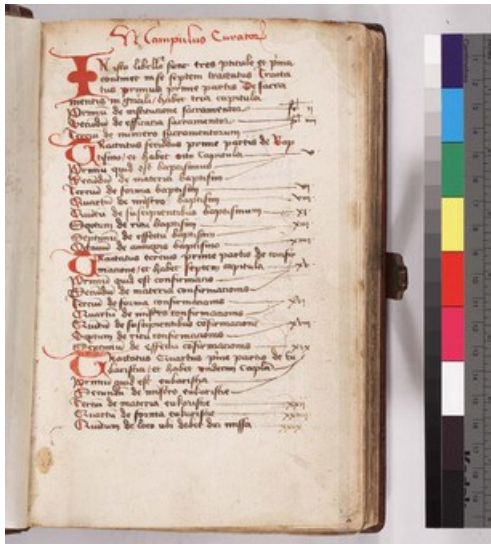 Manipulus Curatorum
In isto libello sunt tres particule et prima
continet in se septem tractatus Tracta
tus primus prime partis De sacra
mentis in generali / habet tria capitula
Primum de institucione sacramentorum ii
Secundum de efficacia sacramentorum iii
Tercium de ministro sacramentorum
Tractatus secundus prime partis de Bap
tismo / et habet octo Capitula v
Primum quid est baptismus
Secundum de materia baptismi
Tercium de forma baptismi vi
Quartum de ministro baptismi vii
Quintum de suscipientibus baptismum xi
Sextum de ritu baptismi xii
Septimum de effectu baptismi
Octavum de annexis baptismo xiii
Tractatus tercius prime partis de confir
macione / et habet septem capitula xv
Primum quid est confirmacio
Secundum de materia confirmacionis
Tercium de forma confirmacionis xvi
Quartum de ministro confirmacionis
Quintum de suscipientibus confirmacionem xvii
Sextum de ritu confirmacionis
Septimum de effectu confirmacionis xix
Tractatus Quartus prime partis de eu
karistia / et habet undecim capitula
Primum quid est eukaristia
Secundum de ministro eukaristie
Tercium de materia eukaristie xxii
Quartum de forma eukaristie
Quintum de loco ubi debet dici missa